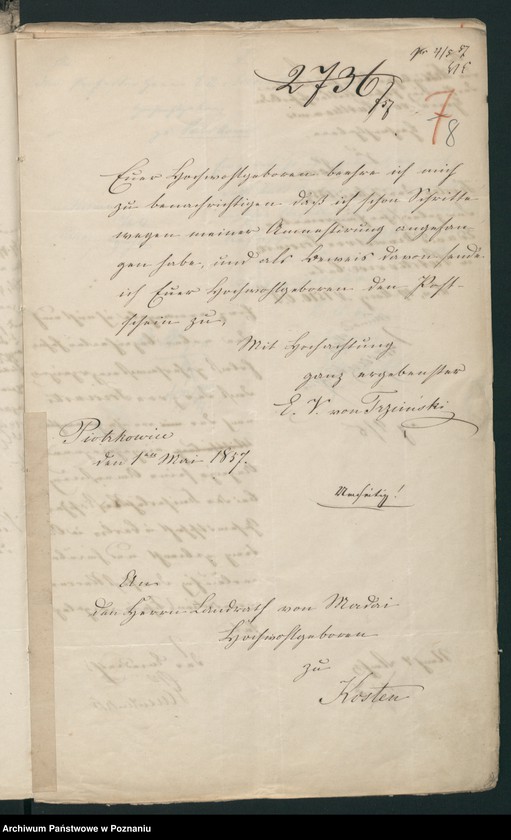 pr 4/5 57
2736/57
7
8
Euer Hochwohlgeboren beehre ich mich
zu benachrichtigen daß ich schon Schritte
wegen meiner Amnestirung angefan
gen habe, und als Beweis davon sende
ich Euer Hochwohlgeboren den Post
schein zu.
Mit Hochachtung
ganz ergebenster
E. V. von Trzciński
Piotrkowice
den 1ten Mai 1857.
An
den Herrn Landrath von Madai
Hochwohlgeboren
zu
Kosten
Archiwum Państwowe w Poznaniu